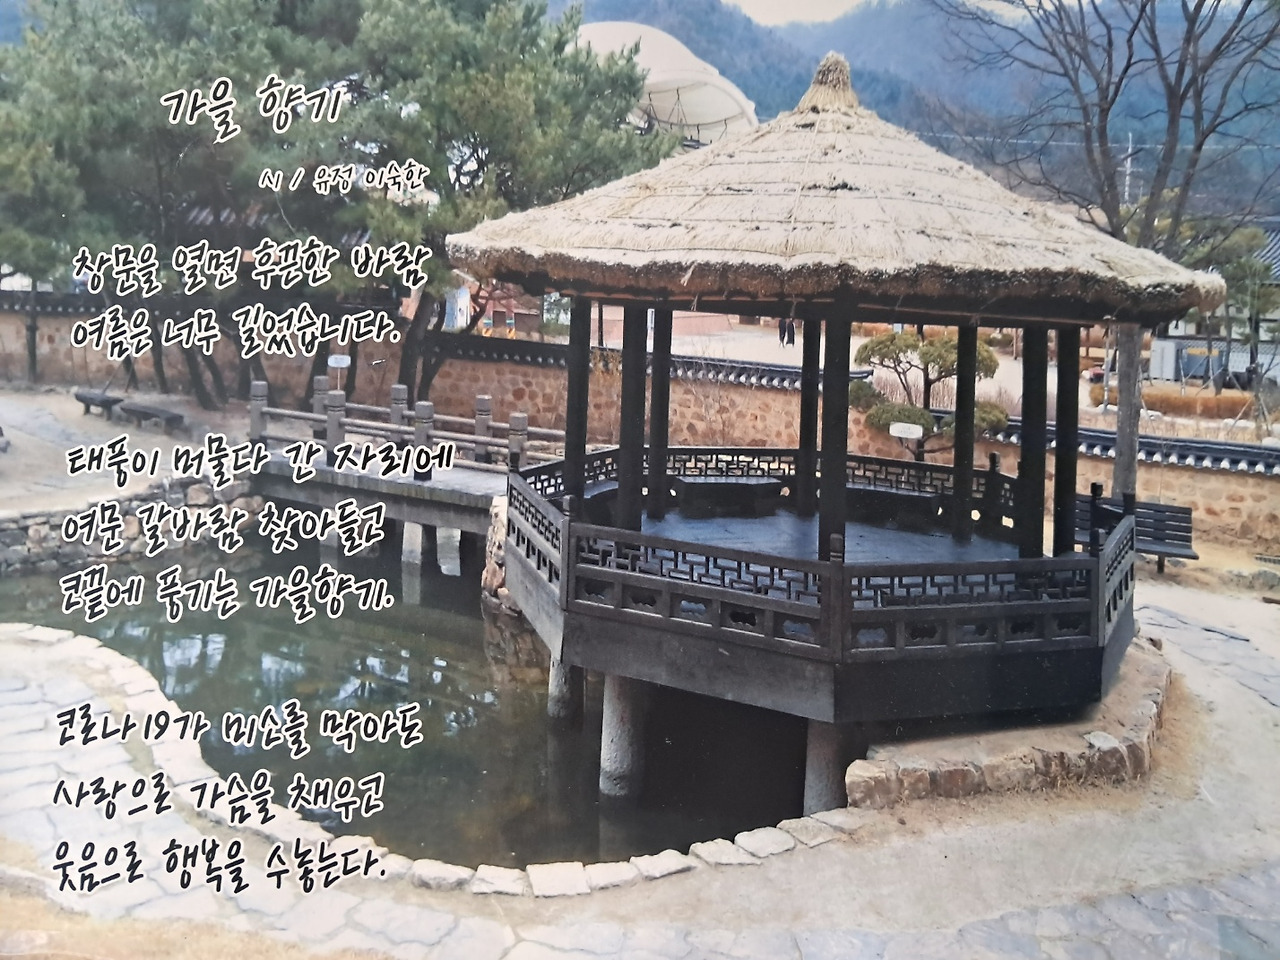 가을 향기
시 / 유정 이숙한
창문을 열면 후끈한 바람
여름은 너무 길었습니다.
태풍이 머물다 간 자리에
여문 갈바람 찾아들고
코끝에 풍기는 가을향기.
코로나19가 미소를 막아도
사랑으로 가슴을 채우고
웃음으로 행복을 수놓는다.